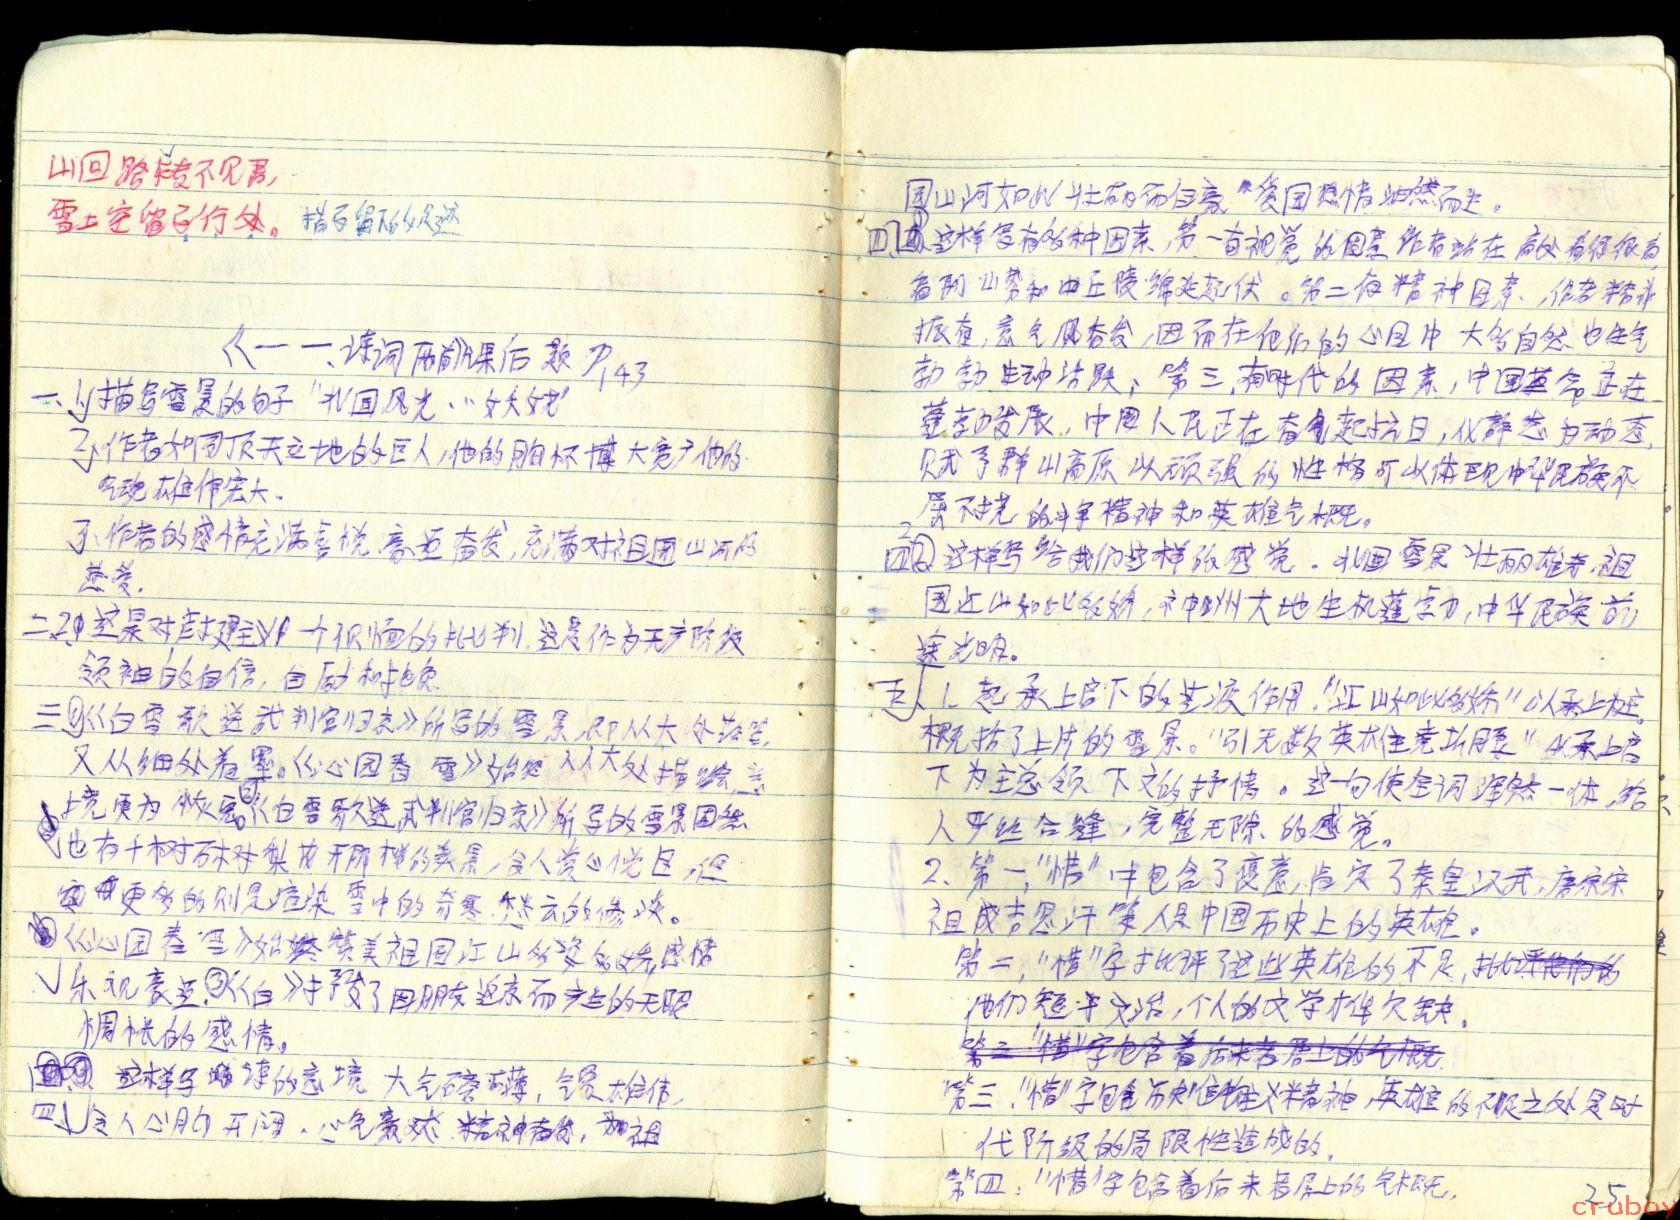 山回路转不见君,
雪上空留马行处。 指马留下的足迹
《一一、诗词两首》课后题 P143
一、1、描写雪景的句子“北国风光…妖娆”
2、作者如同顶天立地的巨人,他的胸怀博大宽广他的
气魄雄伟宏大。
3、作者的感情充满喜悦、豪迈奋发,充满对祖国山河的
热爱。
二、2、这是对封建主义 一个很 的批判,这是作为无产阶级
领袖的自信,自励和抱负
三、①《白雪歌送武判官归京》所写的雪景,即从大处落笔,
又从细处着墨。《沁园春 雪》始终从大处描绘,意
境更为恢宏。②《白雪歌送武判官归京》所写的雪景固然
也有千树万树梨花开那样的美景,令人赏心悦目,但
更多的则是渲染雪中的奇寒,愁云的惨淡。
《沁园春 雪》始终赞美祖国江山多姿多娇,感情
乐观豪迈,③《白》抒发了因朋友返京而产生的无限
惆怅的感情。
这样写 词的意境大气磅礴,气象雄伟,
四、1、令人心胸开阔、心气豪爽、精神奋发,为祖
国山河如此壮丽而自豪,爱国热情油然而生。
四、 这样写有各种因素,第一有视觉的因素作者站在高处看得很高,
看到山势和丘陵绵延起伏。第二有精神因素,作者精神
振奋,意气风奋发,因而在他们的心目中大有自然也生气
勃勃生动活跃;第三,有时代的因素,中国革命正在
蓬勃发展,中国人民正在奋起抗日,化静态为动态,
赋予群山高原以顽强的性格可以体现中华民族不
屈不挠的斗争精神和英雄气概。
四2 这样写给我们这样的感觉。北国雪景壮丽雄奇,祖
国江山如此多娇,神州大地生机蓬勃,中华民族前
途光明。
五、1、起承上启下的过渡作用,“江山如此多娇”以承上为主,
概括了上片的雪景。“引无数英雄竞折腰”以承上启
下为主总领下文的抒情。这一句使全词浑然一体,给
人严丝合缝,完整无隙的感觉。
2、第一,“惜”中包含了褒意,肯定了秦皇汉武,唐宗宋
祖成吉思汗等人是中国历史上的英雄。
第二,“惜”字批评了这些英雄的不足,批评他们的
他们短于文治,个人的文学才华欠缺。
第三“惜”字包含着后来者居上的气概
第三,“惜”字包含历史 主义精神,英雄的不足之处是时
代阶级的局限性造成的。
第四:“惜”字包含着后来者居上的气概。
25
cruboy